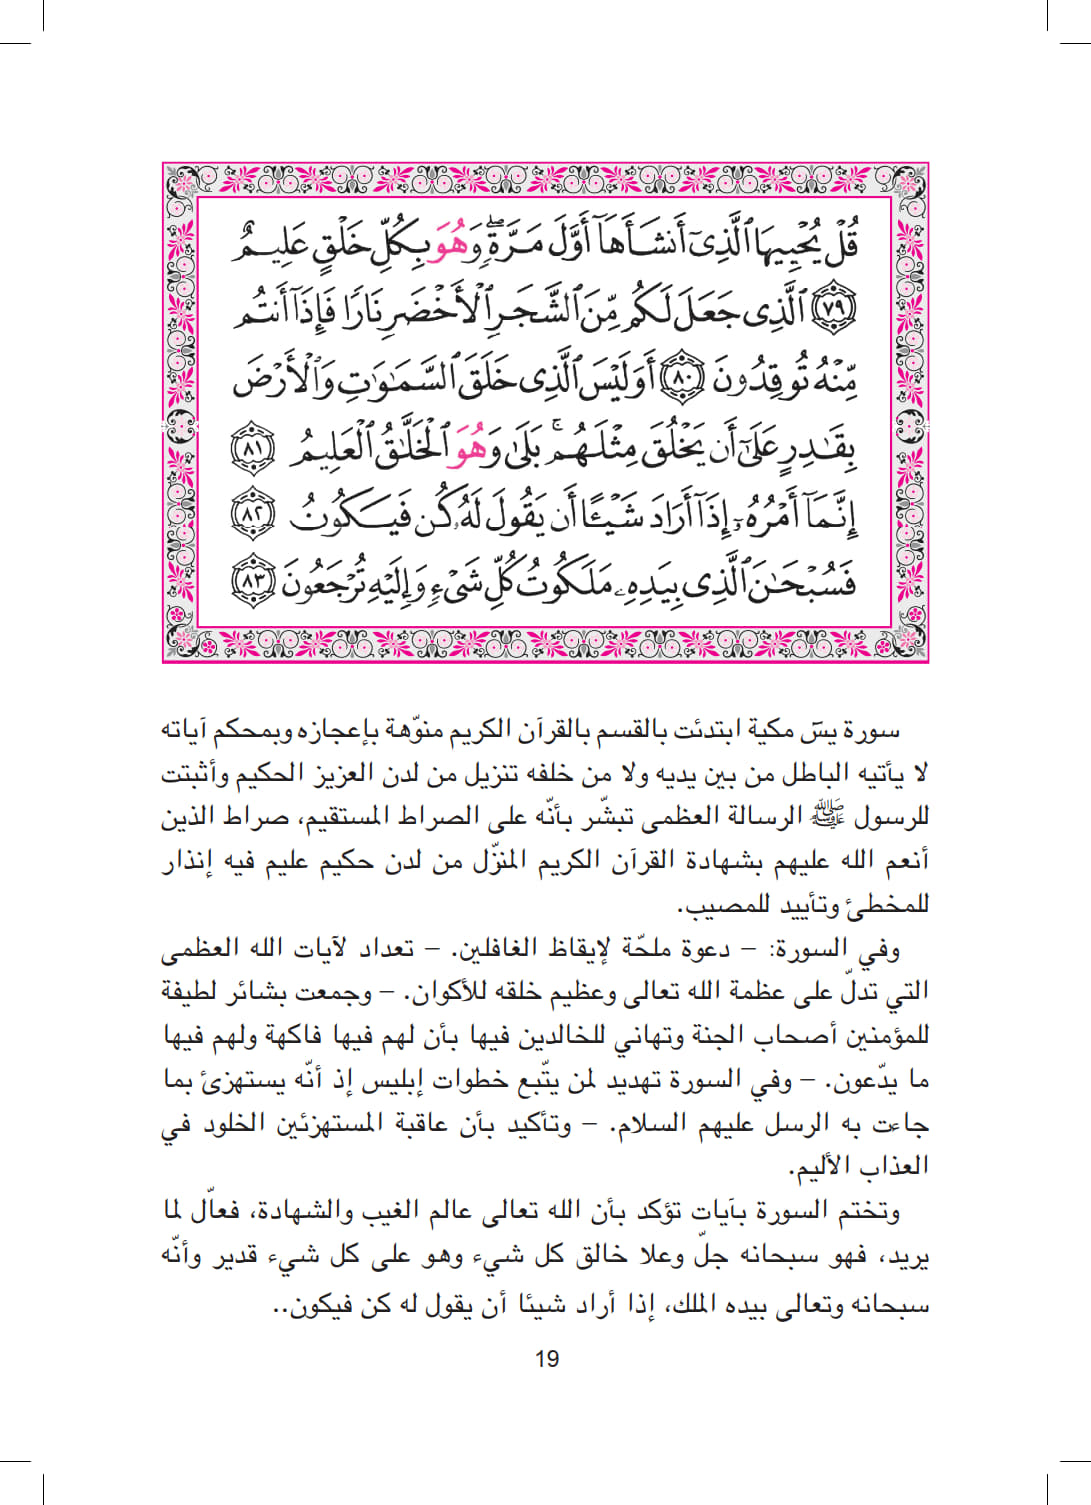 قُلْ يُحْيِيهَا ٱلَّذِىٓ أَنشَأَهَآ أَوَّلَ مَرَّةٍۖ وَهُوَ بِكُلِّ خَلْقٍ عَلِيمٌ
﴿٧٩﴾ ٱلَّذِى جَعَلَ لَكُم مِّنَ ٱلشَّجَرِ ٱلْأَخْضَرِ نَارًا فَإِذَآ أَنتُم
مِّنْهُ تُوقِدُونَ ﴿٨٠﴾ أَوَلَيْسَ ٱلَّذِى خَلَقَ ٱلسَّمَٰوَٰتِ وَٱلْأَرْضَ
بِقَٰدِرٍ عَلَىٰٓ أَن يَخْلُقَ مِثْلَهُمۚ بَلَىٰ وَهُوَ ٱلْخَلَّٰقُ ٱلْعَلِيمُ ﴿٨١﴾
إِنَّمَآ أَمْرُهُۥٓ إِذَآ أَرَادَ شَيْـًٔا أَن يَقُولَ لَهُۥ كُن فَيَكُونُ ﴿٨٢﴾
فَسُبْحَٰنَ ٱلَّذِى بِيَدِهِۦ مَلَكُوتُ كُلِّ شَىْءٍ وَإِلَيْهِ تُرْجَعُونَ ﴿٨٣﴾
سورة يسٓ مكية ابتدئت بالقسم بالقرآن الكريم منوّهة بإعجازه وبمحكم آياته
لا يأتيه الباطل من بين يديه ولا من خلفه تنزيل من لدن العزيز الحكيم وأثبتت
للرسول ﷺ الرسالة العظمى تبشّر بأنّه على الصراط المستقيم، صراط الذين
أنعم الله عليهم بشهادة القرآن الكريم المنزّل من لدن حكيم عليم فيه إنذار
للمخطئ وتأييد للمصيب.
وفي السورة: – دعوة ملحّة لإيقاظ الغافلين. – تعداد لآيات الله العظمى
التي تدلّ على عظمة الله تعالى وعظيم خلقه للأكوان. – وجمعت بشائر لطيفة
للمؤمنين أصحاب الجنة وتهاني للخالدين فيها بأن لهم فيها فاكهة ولهم فيها
ما يدّعون. – وفي السورة تهديد لمن يتّبع خطوات إبليس إذ أنّه يستهزئ بما
جاءت به الرسل عليهم السلام. – وتأكيد بأن عاقبة المستهزئين الخلود في
العذاب الأليم.
وتختم السورة بآيات تؤكد بأن الله تعالى عالم الغيب والشهادة، فعاّل لما
يريد، فهو سبحانه جلّ وعلا خالق كل شيء وهو على كل شيء قدير وأنّه
سبحانه وتعالى بيده الملك، إذا أراد شيئا أن يقول له كن فيكون..
19